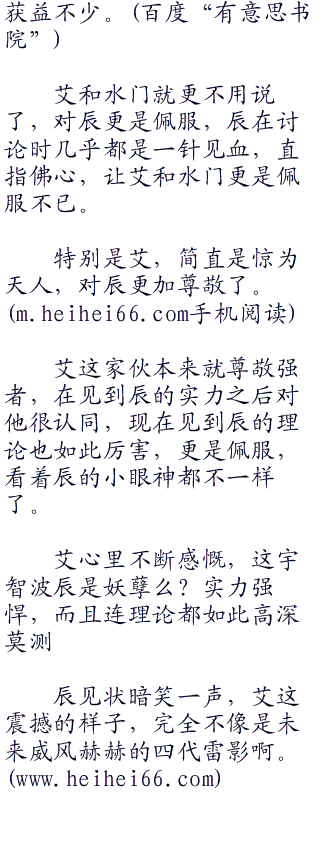 获益不少。(百度“有意思书
院”)
艾和水门就更不用说
了，对辰更是佩服，辰在讨
论时几乎都是一针见血，直
指佛心，让艾和水门更是佩
服不已。
特别是艾，简直是惊为
天人，对辰更加尊敬了。
(m.heihei66.com手机阅读)
艾这家伙本来就尊敬强
者，在见到辰的实力之后对
他很认同，现在见到辰的理
论也如此厉害，更是佩服，
看着辰的小眼神都不一样
了。
艾心里不断感慨，这宇
智波辰是妖孽么？实力强
悍，而且连理论都如此高深
莫测
辰见状暗笑一声，艾这
震撼的样子，完全不像是未
来威风赫赫的四代雷影啊。
(www.heihei66.com)